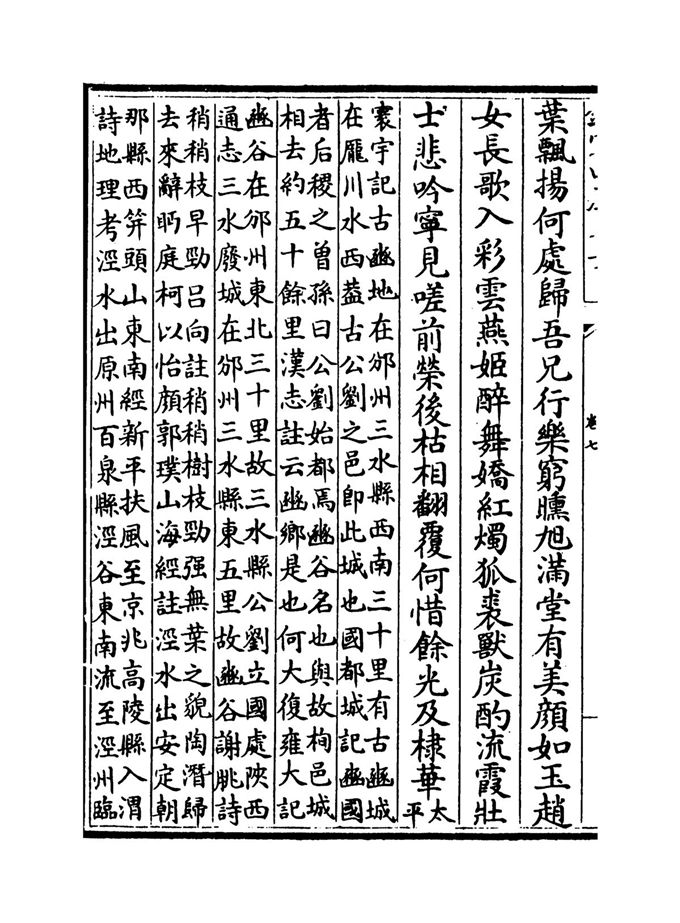 葉飄揚何處歸吾兄行樂窮曛旭滿堂有美顔如玉趙
女長歌入彩雲燕姬醉舞嬌紅燭狐裘獸炭酌流霞壯
士悲吟寧見嗟前榮後枯相翻覆何惜餘光及棣華太平
寰宇記古豳地在邠州三水縣西南三十里有古豳城
在隴川水西葢古公劉之邑即此城也國都城記豳國
者后稷之曽孫曰公劉始都焉豳谷名也與故栒邑城
相去約五十餘里漢志註云豳鄉是也何大復雍大記
豳谷在邠州東北三十里故三水縣公劉立國處陜西
通志三水廢城在邠州三水縣東五里故豳谷謝脁詩
稍稍枝早勁吕向註稍稍樹枝勁强無葉之貌陶潛歸
去來辭眄庭柯以怡顔郭璞山海經註涇水出安定朝
那縣西笄頭山東南經新平扶風至京兆高陵縣入渭
詩地理考涇水出原州百泉縣涇谷東南流至涇州臨
卷七